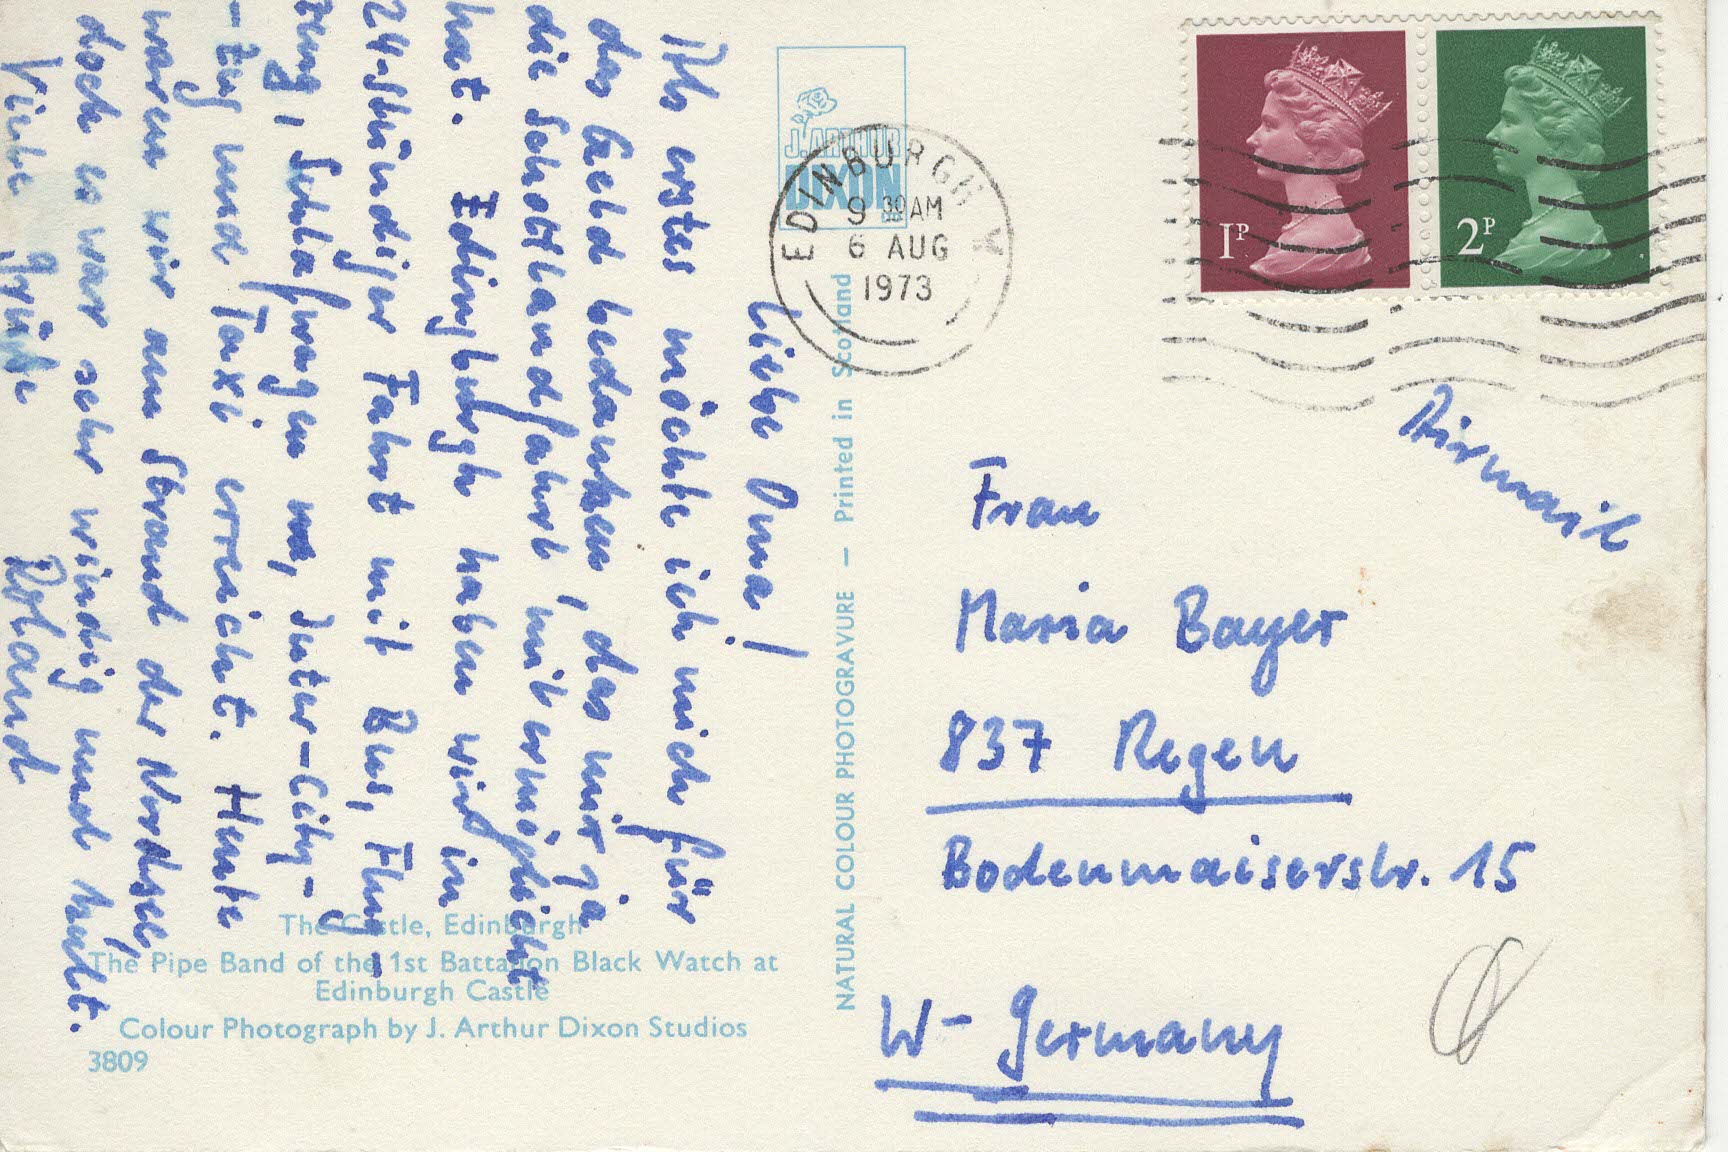 Liebe Oma!
Als erstes möchte ich mich für
das Geld bedanken, das mir ja
die Schottlandfahrt mit ermöglicht
hat. Edingburgh haben wir in
24-stündiger Fahrt mit Bus, Flug-
zeug, Schlafwagen, Inter-City-
-Zug und Taxi erreicht. Heute
waren wir am Strand der Nordsee,
doch es war sehr windig und kalt.
Viele Grüße Roland
The Castle, Edinburgh
The Pipe Band of the 1st Battalion Black Watch at
Edinburgh Castle
Colour Photograph by J. Arthur Dixon Studios
3809
J. ARTHUR
DIXON
NATURAL COLOUR PHOTOGRAVURE — Printed in Scotland
EDINBURGH
9 30 AM
6 AUG
1973
1P
2P
Airmail
Frau
Maria Bayer
837 Regen
Bodenmaiserstr. 15
W-Germany